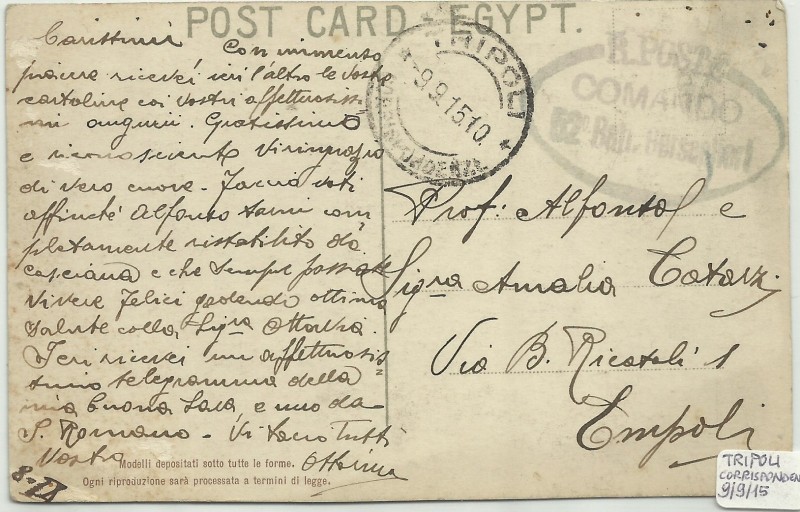 POST CARD - EGYPT.
Carissimi
Con immenso
piacere ricevei ieri l'altro le vostre
cartoline coi vostri affettuosissi
mi auguri. Gratissimo
e riconoscente Vi ringrazio
di vero cuore. Faccio voti
affinché Alfonso torni com
pletamente ristabilito da
Casciana e che sempre possiate
vivere felici godendo ottima
salute colla Sigra Ottavia.
Ieri ricevei un affettuosis=
simo telegramma della
mia buona Sara e uno da
S. Romano. Vi bacio tutti
Vostro
8-IX
TRIPOLI
9.9.15.10.
CORRISPONDENZE
R. POSTE
COMANDO
Batt. Bersaglieri
Prof. Alfonso e
Sigra Amalia Catarzi
Via B. Ricasoli 1
Empoli
Modelli depositati sotto tutte le forme.
Ogni riproduzione sarà processata a termini di legge.
TRIPOLI
CORRISPONDEN
9/9/15